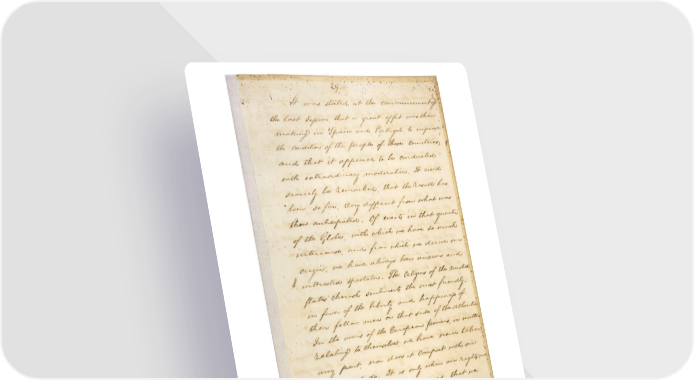 29.
It was stated at the commencement
the last session that a great effort was then
making in Spain and Portugal to improve
the condition of the people of those countries,
and that it appeared to be conducted
with extraordinary moderation. It need
scarcely be remarked, that the result has
been so far, very different from what was
then anticipated. Of events in that quarter
of the Globe, with which we have so much
intercourse, and from which we derive our
origin, we have always been anxious and
interested spectators. The Citizens of the United
States cherish sentiments the most friendly,
in favor of the liberty and happiness of
their fellow men on that side of the Atlantic
In the wars of the European powers, in matters
relating to themselves we have never taken
any part, nor does it comport with our
do. It is only when our rights
that we